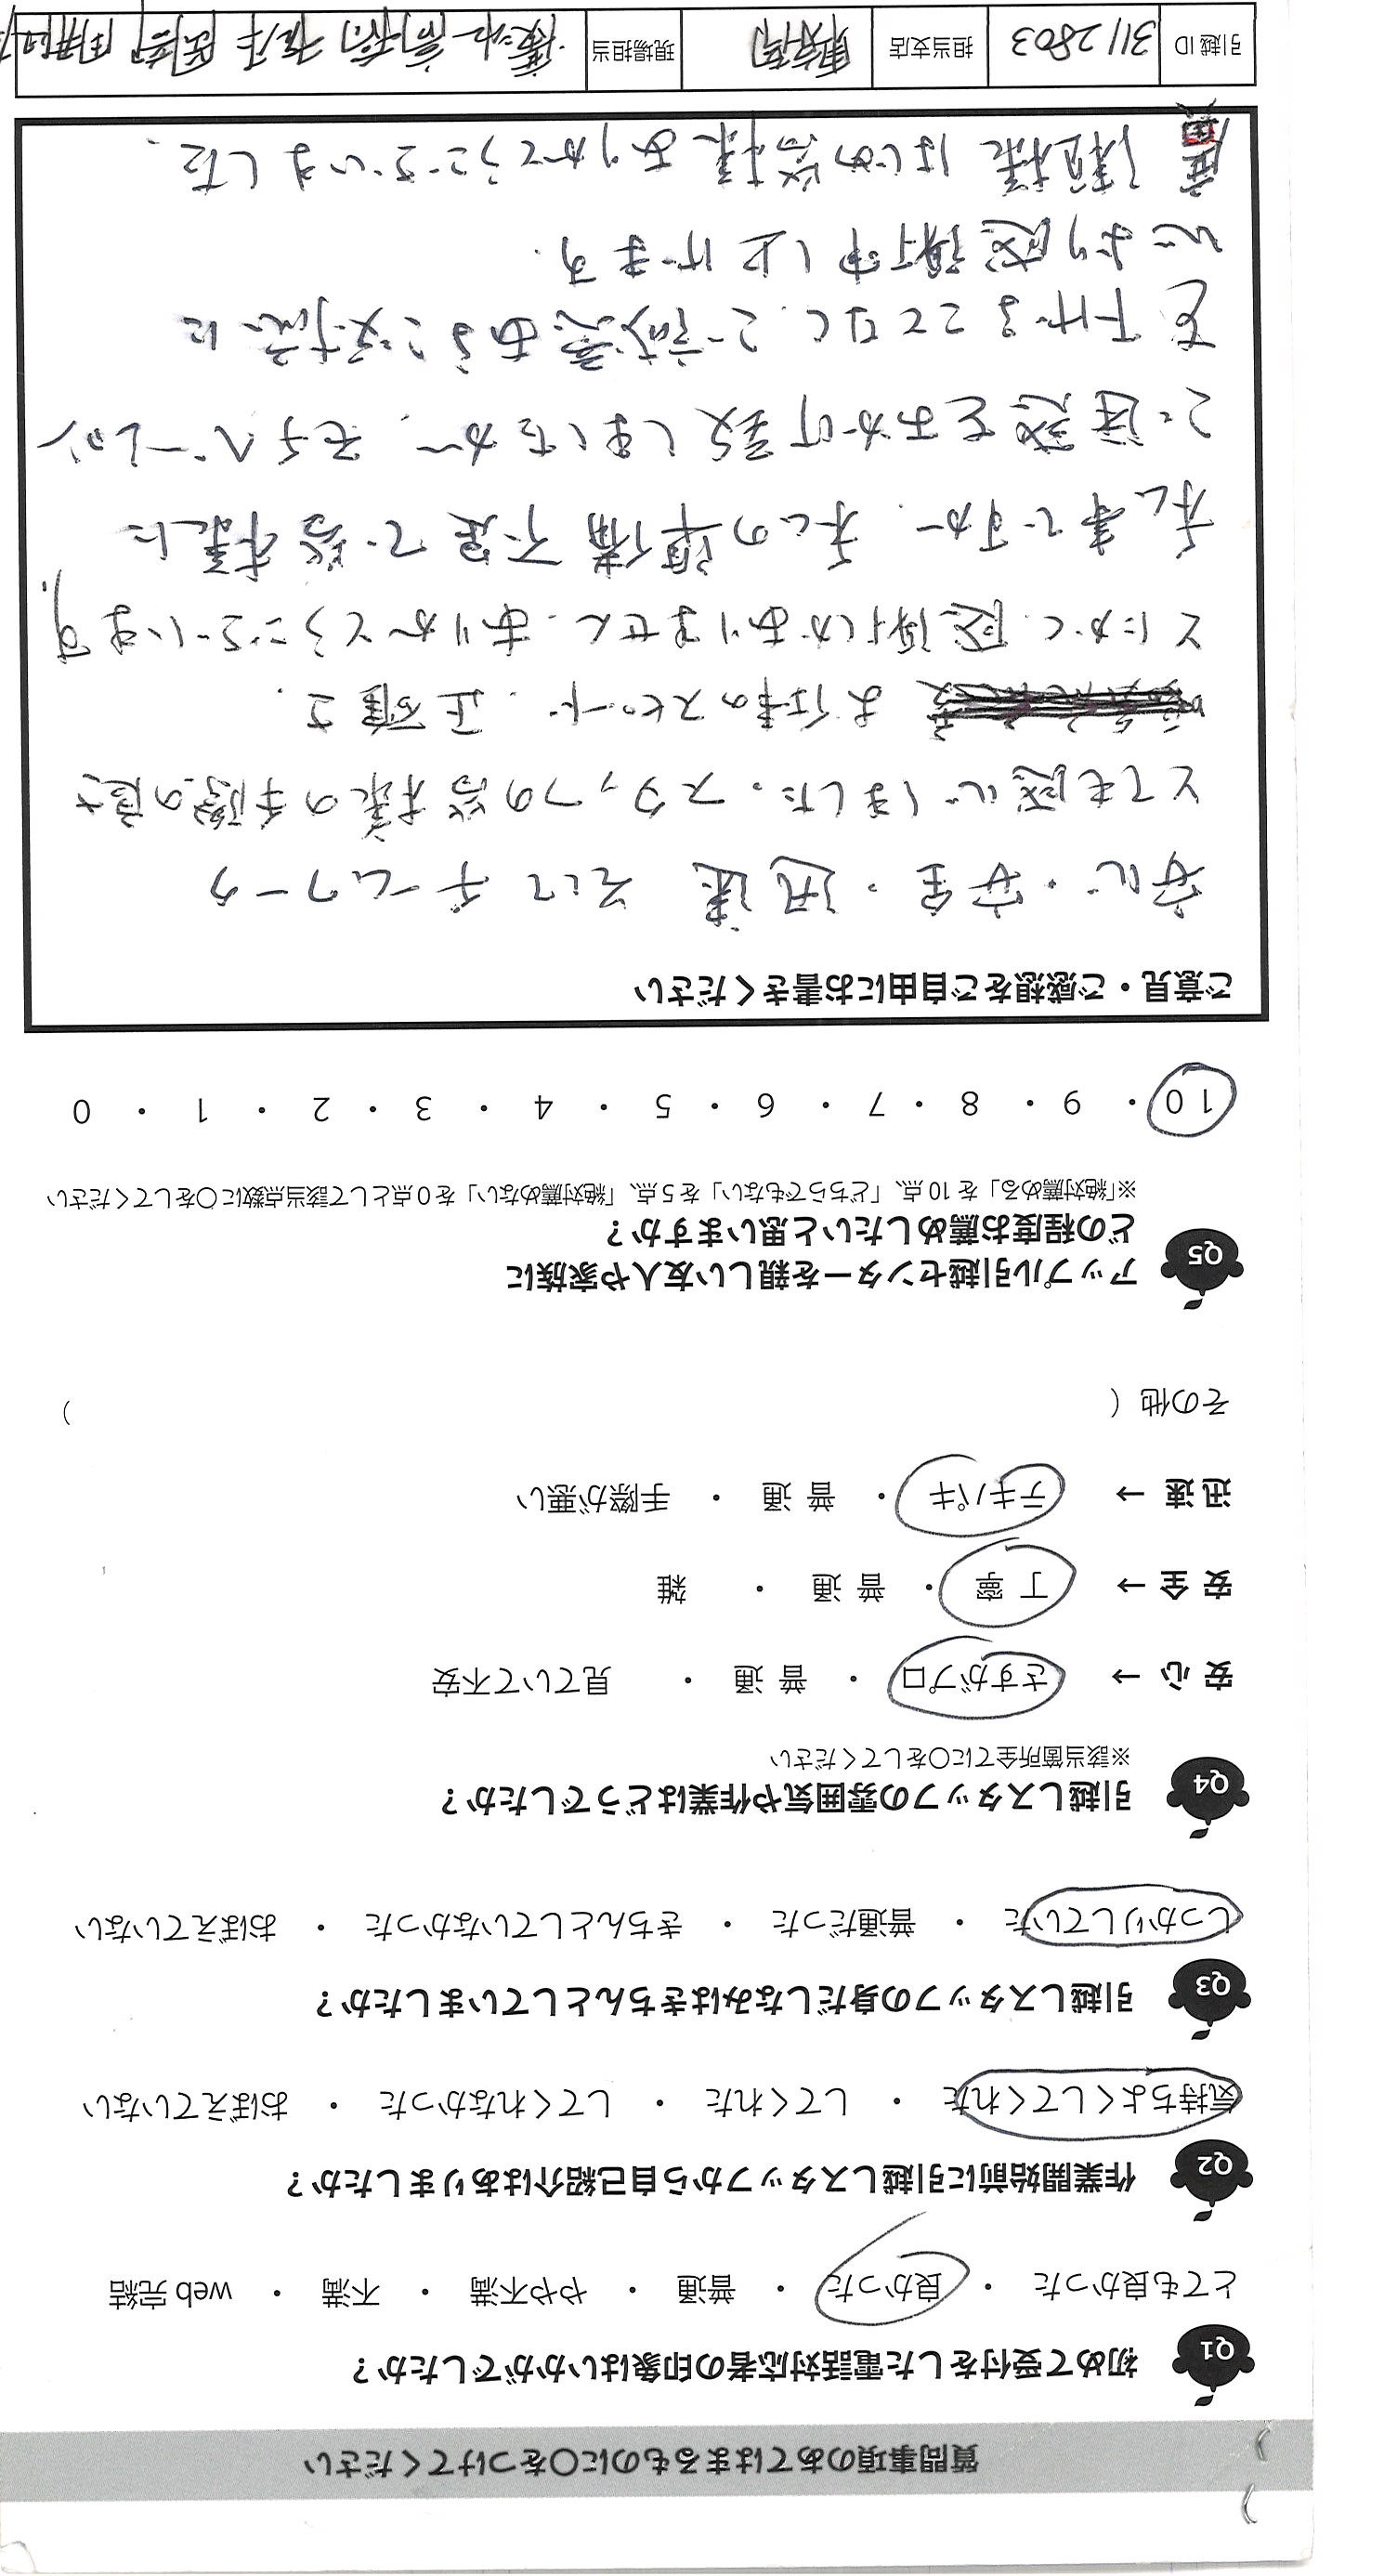 質問事項のあてはまるものに○をつけてください
Q1 初めて受付をした電話対応者の印象はいかがでしたか？
とても良かった ・ 良かった ・ 普通 ・ やや不満 ・ 不満 ・ web 完結
Q2 作業開始前に引越しスタッフから自己紹介はありましたか？
気持ちよくしてくれた ・ してくれた ・ してくれなかった ・ おぼえていない
Q3 引越しスタッフの身だしなみはきちんとしていましたか？
しっかりしていた ・ 普通だった ・ きちんとしていなかった ・ おぼえていない
Q4 引越しスタッフの雰囲気や作業はどうでしたか？
※該当箇所全てに○をしてください
安 心 → さすがプロ ・ 普 通 ・ 見ていて不安
安 全 → 丁 寧 ・ 普 通 ・ 雑
迅 速 → テキパキ ・ 普 通 ・ 手際が悪い
その他（ ）
Q5 アップル引越センターを親しい友人や家族に
どの程度お薦めしたいと思いますか？
※「絶対薦める」を 10 点、「どちらでもない」を 5 点、「絶対薦めない」を 0 点として該当点数に○をしてください
10 ・ 9 ・ 8 ・ 7 ・ 6 ・ 5 ・ 4 ・ 3 ・ 2 ・ 1 ・ 0
ご意見・ご感想をご自由にお書きください
安心・安全・迅速 そして チームワーク
とても感心しました。スタッフの皆様の手際の良さ
お仕事のスピード、正確さ、
とにかく感謝しかありません。ありがとうございます。
私事ですが、私の準備不足で皆様に
ご迷惑をおか致しましたが、モチベーション
を下げることなく、ご誠意あるご対応に
心より感謝申し上げます。
様 はじめ皆様 ありがとうございました。
引越 ID 3112803 担当支店 現場担当 高橋